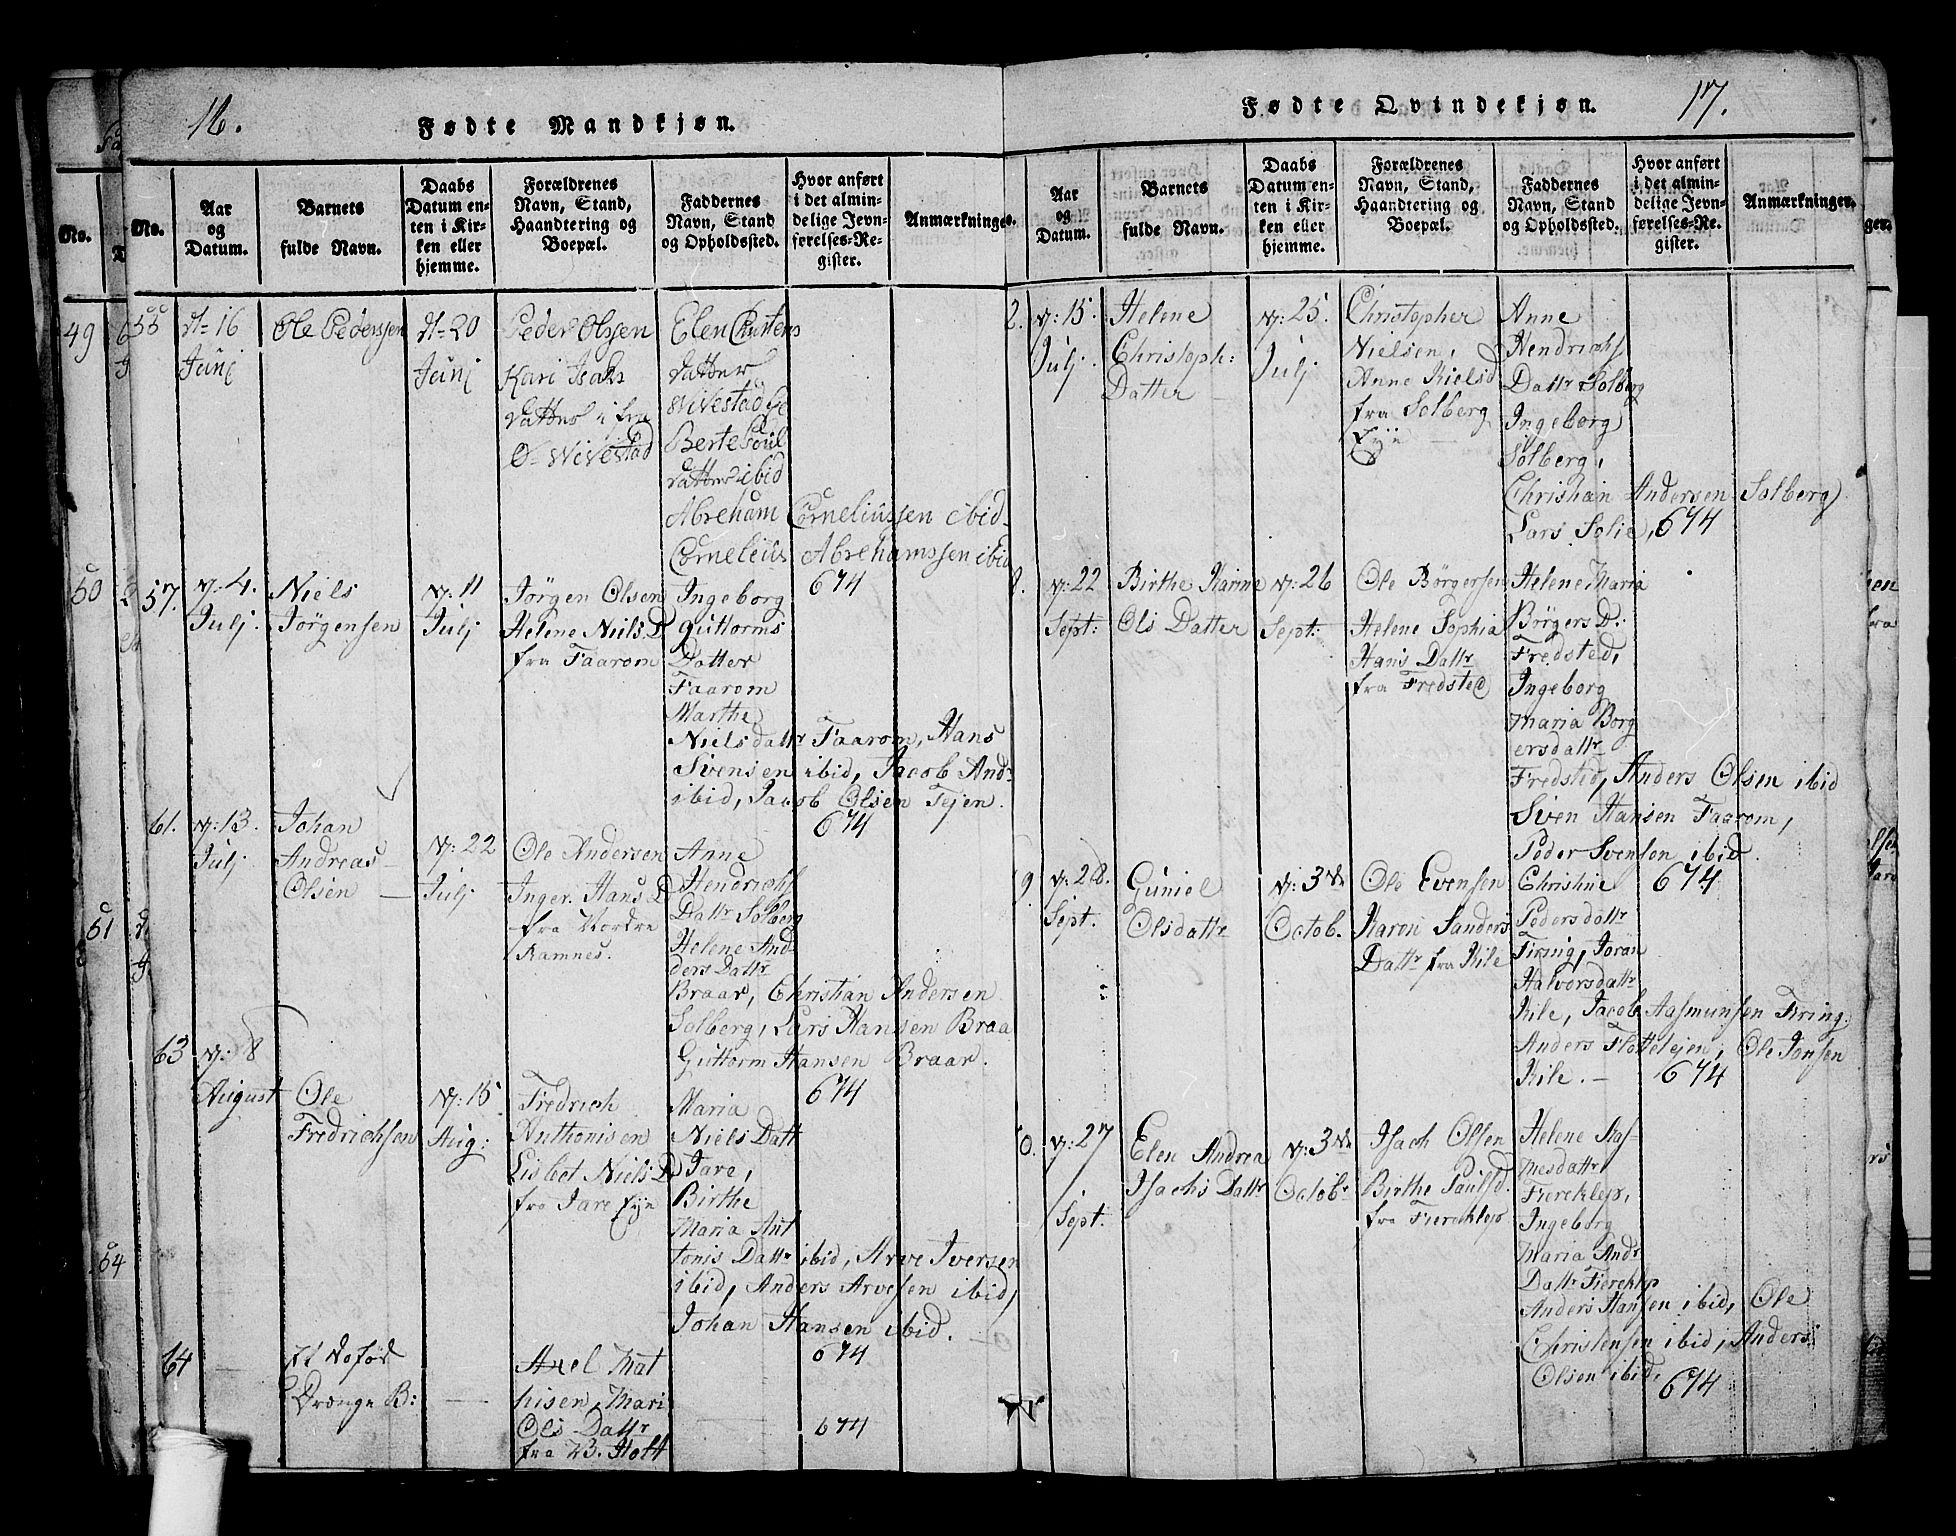 16.
Fødte Mandkjøn.
No.
Aar
og
Datum.
Barnets
fulde Navn.
Daabs
Datum en-
ten i Kir-
ken eller
hjemme.
Forældrenes
Navn, Stand,
Haandtering og
Boepæl.
Faddernes
Navn, Stand
og Opholdssted.
Hvor anført
i det almin-
delige Jevn-
førelses-Re-
gister.
Anmærkninger.
55
d= 16
Junj
Ole Pederssen
d= 20
Junj
Peder Olssen
Kari Isaks
datter i fra
Ø= Wivestad
Elen Christens
datter
Wivestad
Berte Poul
datter ibid
Abreham Corneliussen ibid
Cornelius Abrehamssen ibid
674
57.
d: 4.
Julj.
Niels
Jörgensen
d: 11
Julj
Jörgen Olsen
Helene Niels D
fra Faarom
Ingeborg
Guttorms
Datter
Faarom
Marthe
Nielsdattr Faarom, Hans
Svensen ibid, Jacob Andr
ibid, Jacob Olsen Tejen.
674
61.
d: 13.
Julj
Johan
Andreas
Olsen —
d: 22
Julj
Ole Andersen
Inger Hans D
fra Nordre
Ramnes.
Anne
Hendrichs
Dattr Solberg
Helene And
ders Dattr
Braar, Christian Andersen
Solberg, Lars Hansen Braa
Guttorm Hansen Braar.
674
63
d: 8
August
Ole
Fredrichsen
d: 15
Aug:
Fredrich
Anthonisen
Lisbet Niels D
fra Jare Eye
Maria
Niels Datt
Jare,
Birthe
Maria Ant
tonis Dattr ibid, Arve Iversen
ibid, Anders Arvesen ibid,
Johan Hansen ibid. —
674
64
—
Et Dofød
Drænge B:
—
Axel Mat
hisen, Mari
Ols Dattr
fra B. Holt
—
674
17.
Fødte Qvindekjøn.
Aar
og
Datum.
Barnets
fulde Navn.
Daabs
Datum en-
ten i Kir-
ken eller
hjemme.
Forældrenes
Navn, Stand,
Haandtering og
Boepæl.
Faddernes
Navn, Stand
og Opholdssted.
Hvor anført
i det almin-
delige Jevn-
førelses-Re-
gister.
Anmærkninger.
2.
d: 15.
Julj.
Helene
Christoph:
Datter —
d: 25.
Julj
Christopher
Nielsen,
Anne Nielsd
fra Solberg
Eye —
Anne
Hendrichs
Dattr Solberg
Ingeborg
Solberg,
Christian Andersen Solberg
Lars Solie, 674
8.
d: 22
Sept:
Birthe Karine
Ols Datter
d: 26
Sept:
Ole Börgersen
Helene Sophia
Hans Dattr
fra Fredsted
Helene Maria
Börgers D:
Fredsted,
Ingeborg
Maria Borg
ersdattr
Fredsted, Anders Olsen ibid
Sven Hansen Faarom,
Peder Svensen ibid.
674
9.
d: 28.
Sept.
Guniel
Olsdattr
d: 3de
Octob.
Ole Evensen
Karen Sanders
Dattr fra Kile
Christine
Pedersdattr
Firing, Joran
Halvorsdattr
Kile, Jacob Aasmunsen Firing
Anders Flottetejen, Ole Jonsen
Kile. — 674
0.
d: 27
Sept.
Elen Andrea
Isachs Dattr
d: 3de
Octobr
Isach Olsen
Birthe Paulsd.
fra Fiereklep
Helene Ras-
musdattr
Fiereklep,
Ingeborg
Maria Andr
Dattr Fiereklep
Anders Hansen ibid, Ole
Christensen ibid, Anders
Olsen ibid.
674
No.
49
50
51
54